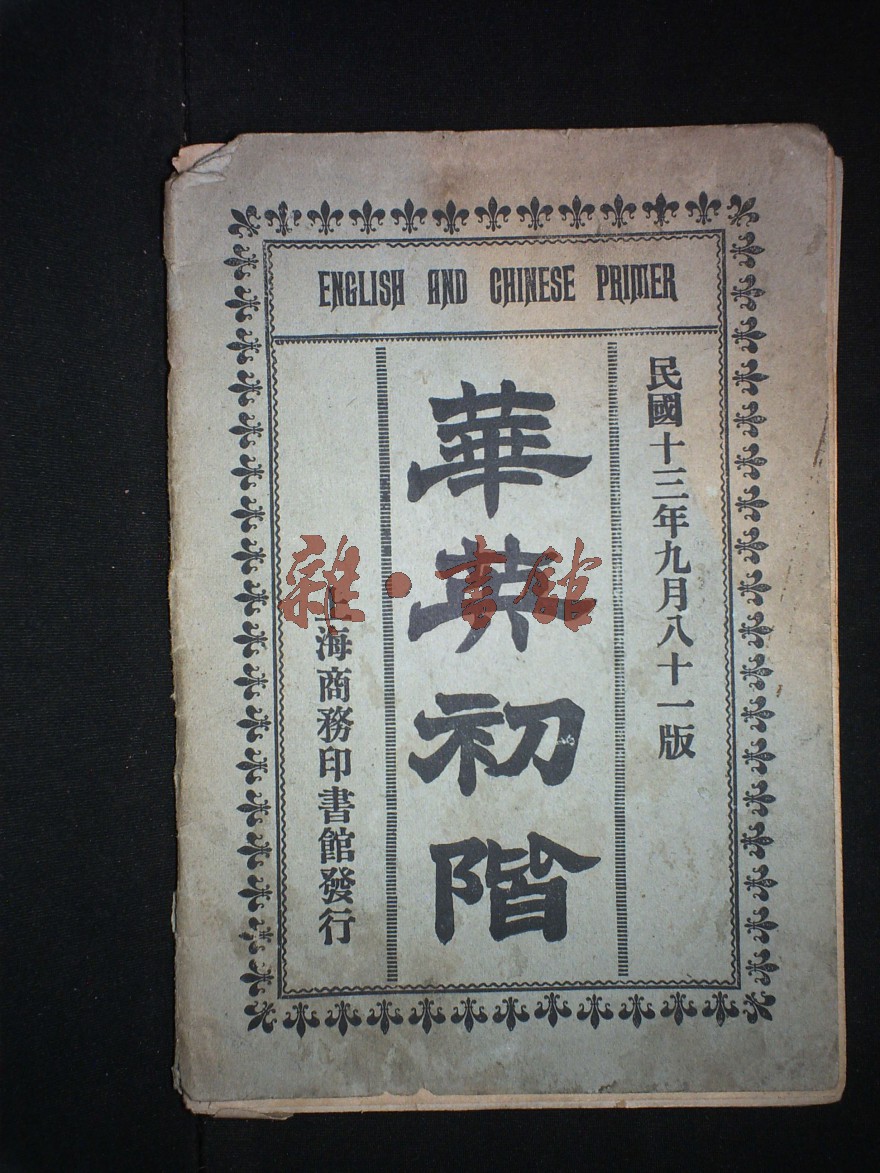 ENGLISH AND CHINESE PRIMER
民國十三年九月八十一版
華英初階
上海商務印書館發行
雜·書館